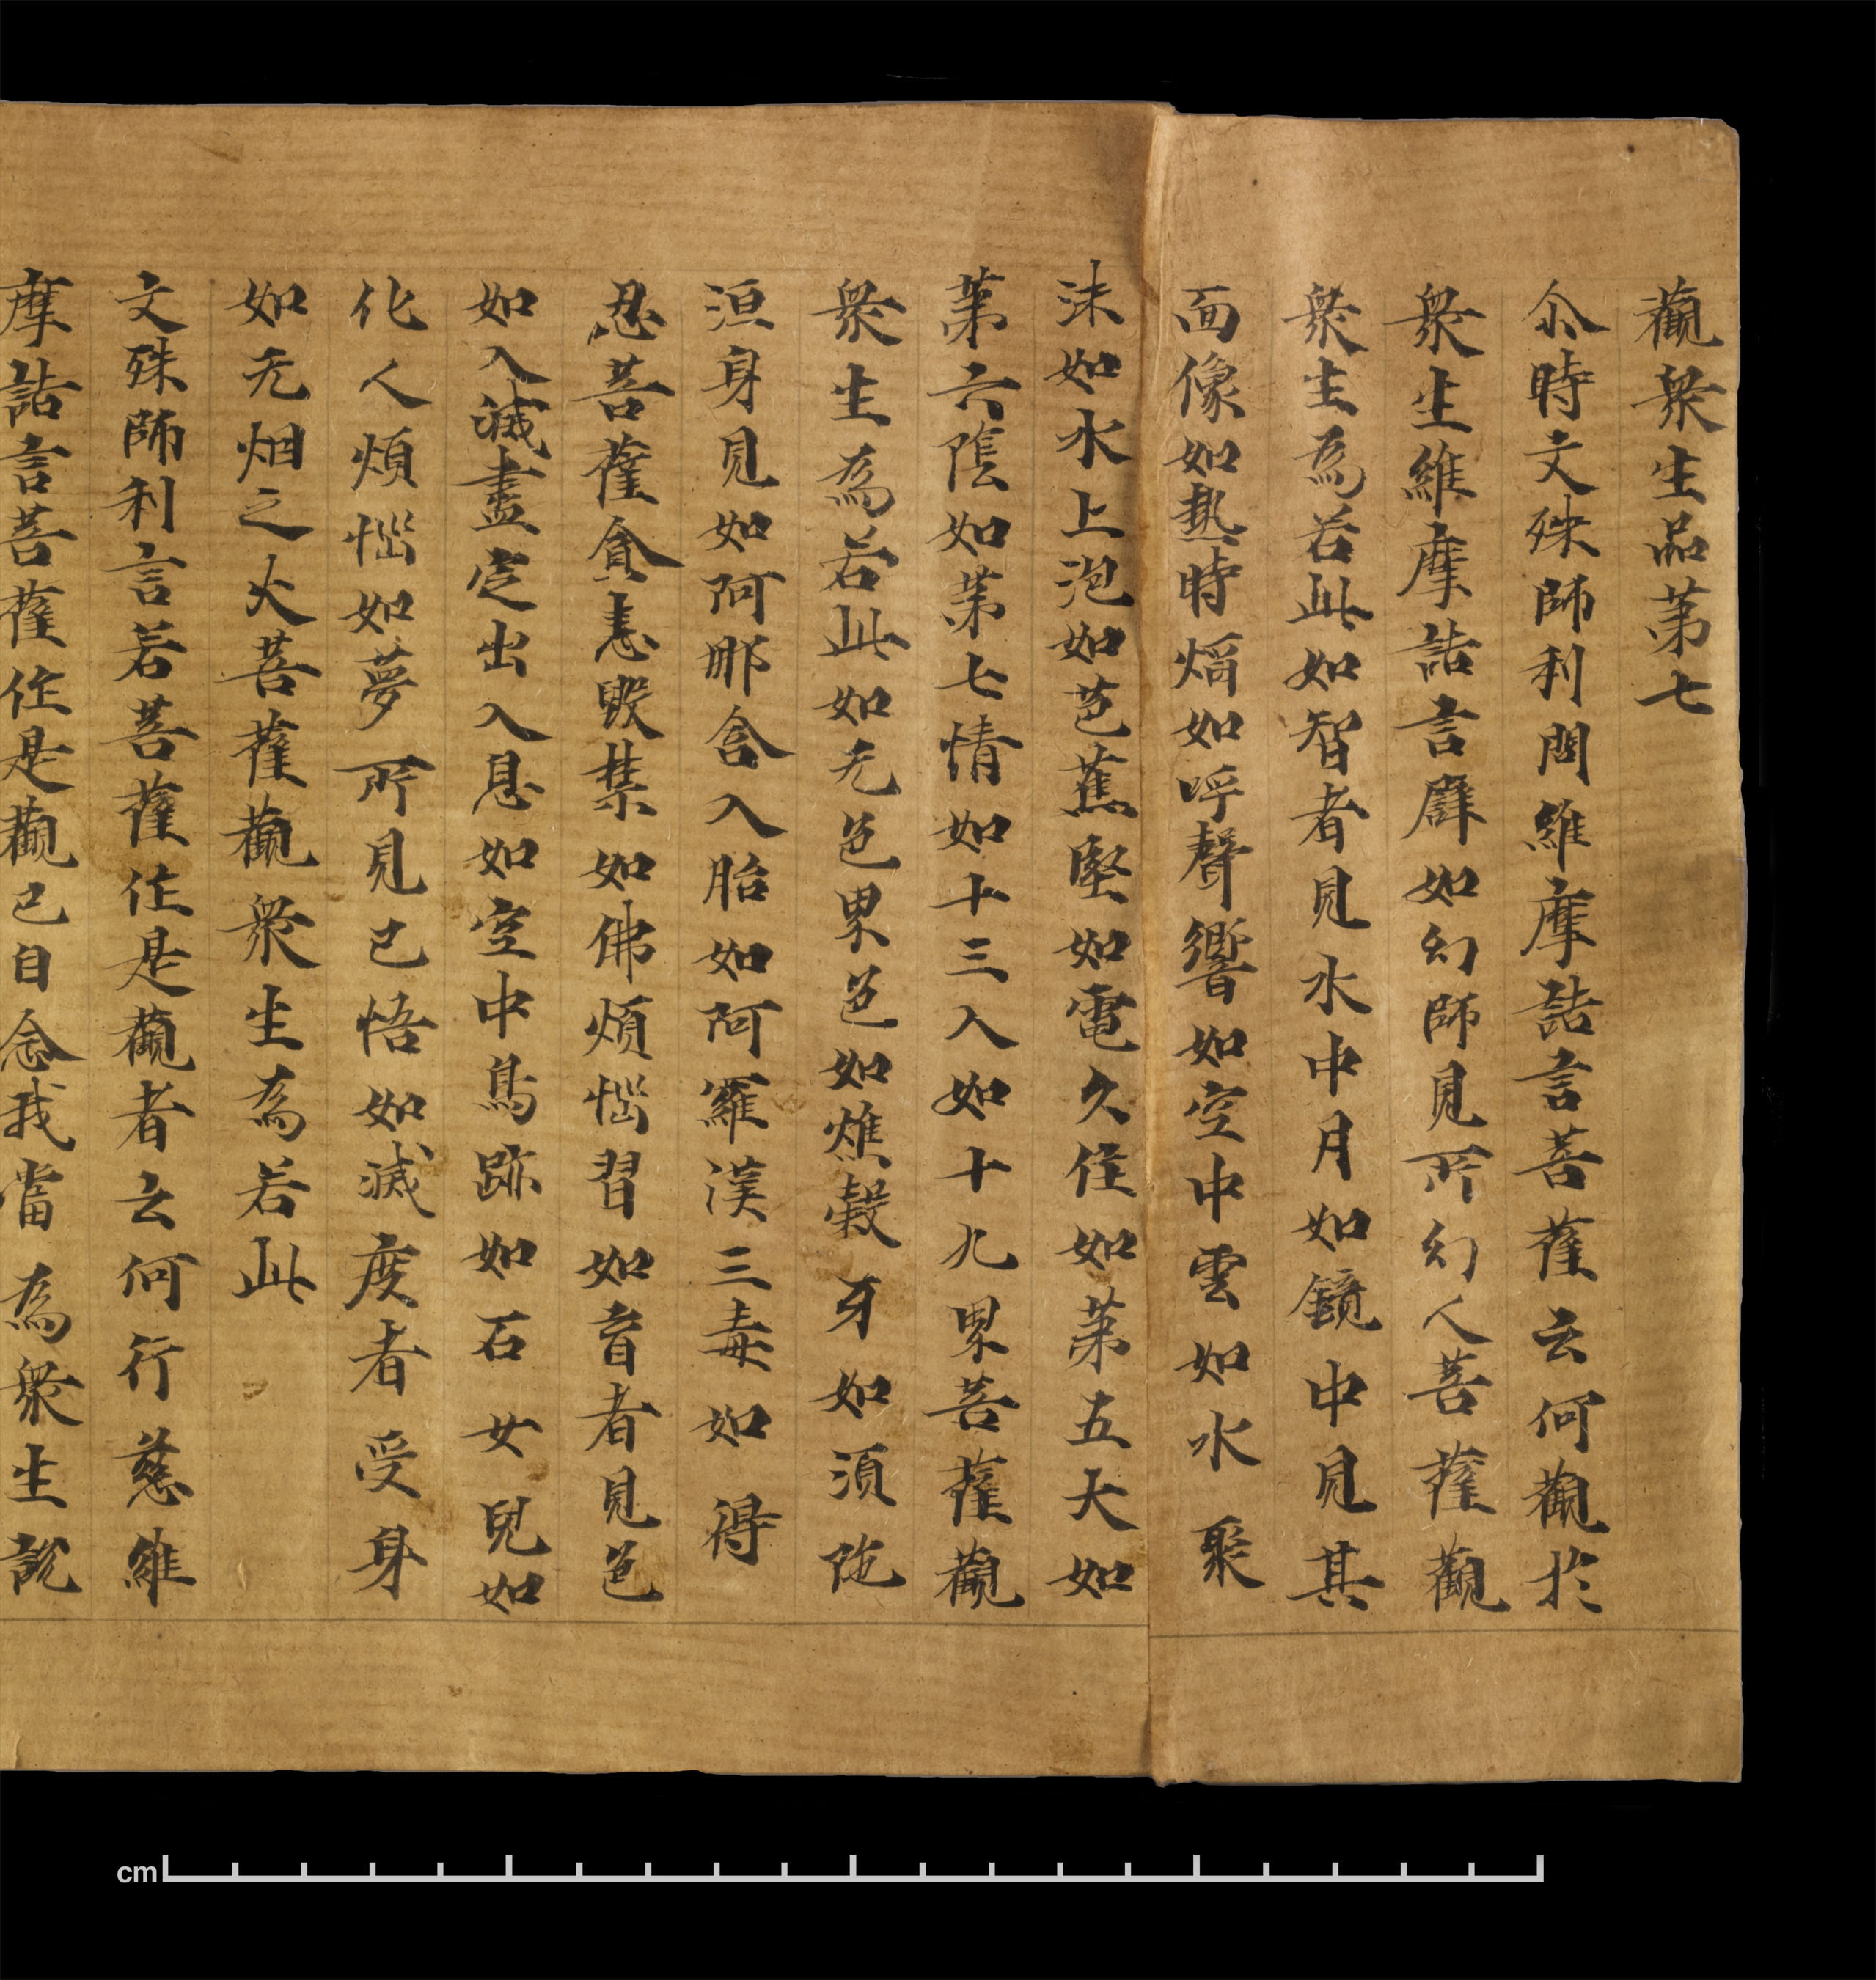 觀衆生品苐七
尒時文殊師利問維摩詰言菩薩云何觀於
衆生維摩詰言辟如幻師見所幻人菩薩觀
衆生為若此如智者見水中月如鏡中見其
面像如熱時熖如呼聲響如空中雲如水聚
沫如水上泡如芭蕉堅如電久住如苐五大如
苐六陰如苐七情如十三入如十九界菩薩觀
衆生為若此如无色界色如燋穀牙如湏陁
洹身見如阿那含入胎如阿羅漢三毒如得
忍菩薩貪恚毀禁如佛煩惱習如盲者見色
如入滅盡定出入息如空中鳥跡如石女兒如
化人煩惱如夢所見已悟如滅度者受身
如无烟之火菩薩觀衆生為若此
文殊師利言若菩薩作是觀者云何行慈維
摩詰言菩薩作是觀已自念我當為衆生說
cm